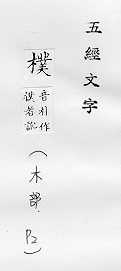 五經文字
樸
音朴作
者訛
(木部. P2)